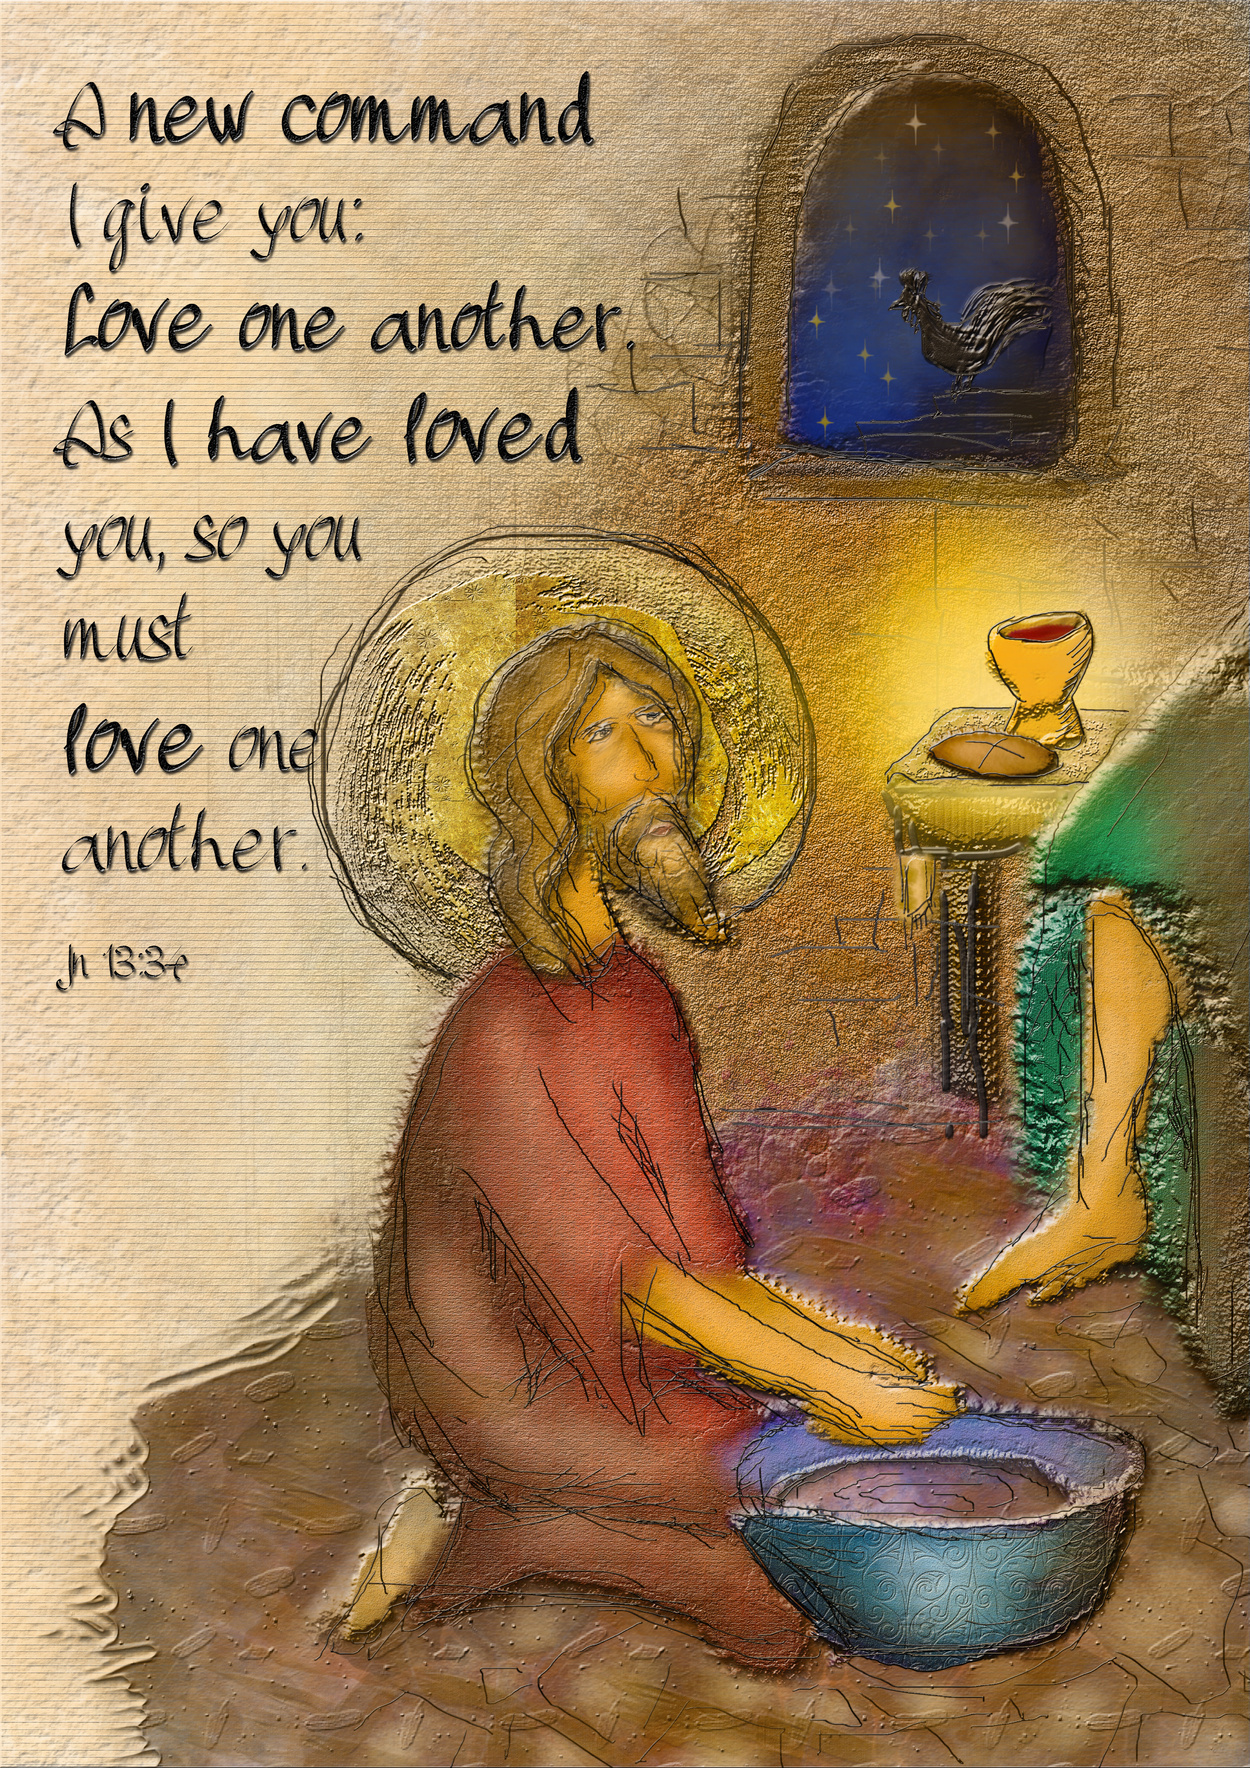 A new command
I give you:
Love one another.
As I have loved
you, so you
must
love one
another.
Jn 13:34